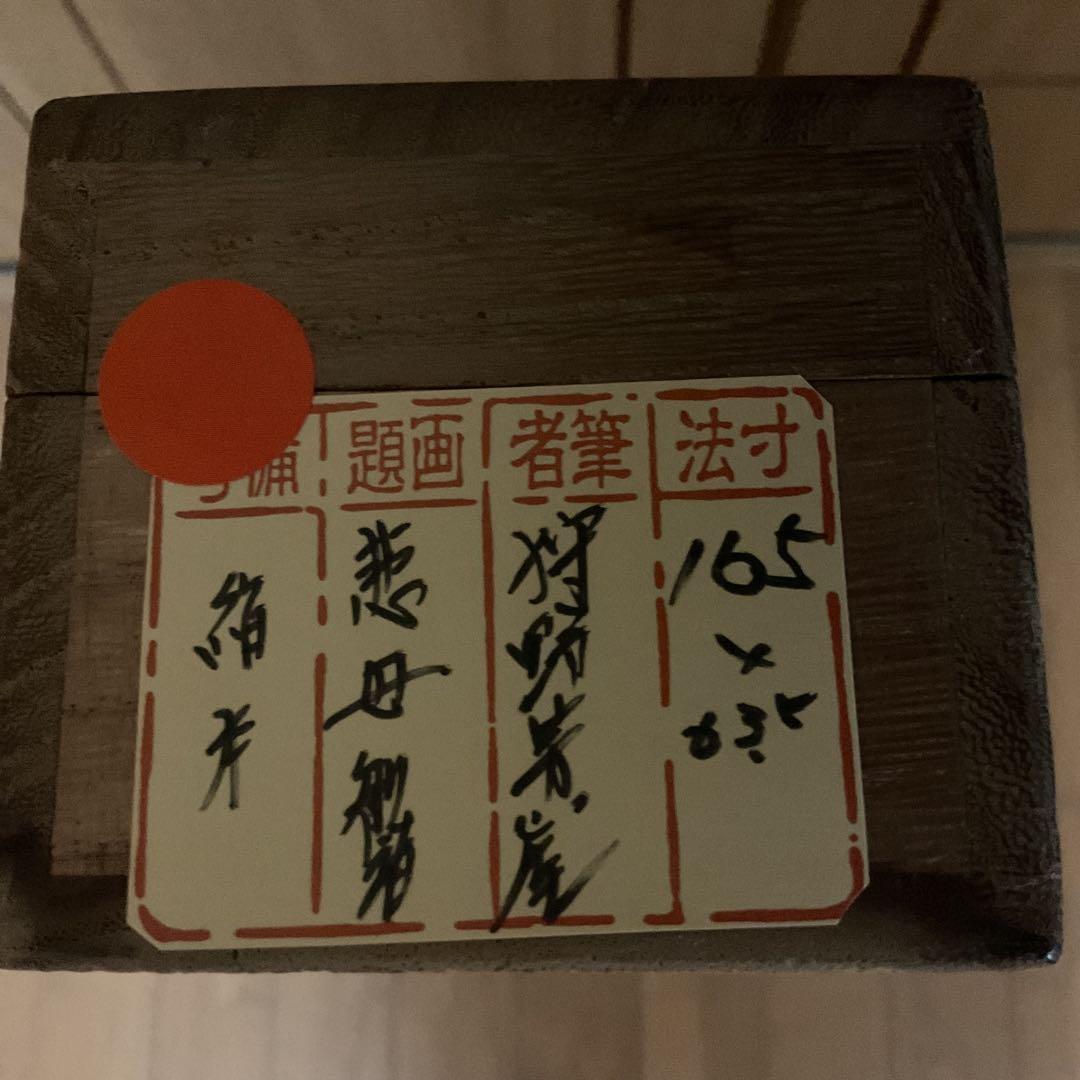 寸法
165
×
63.5
筆者
狩野芳崖
画題
悲母観音
備
絹本